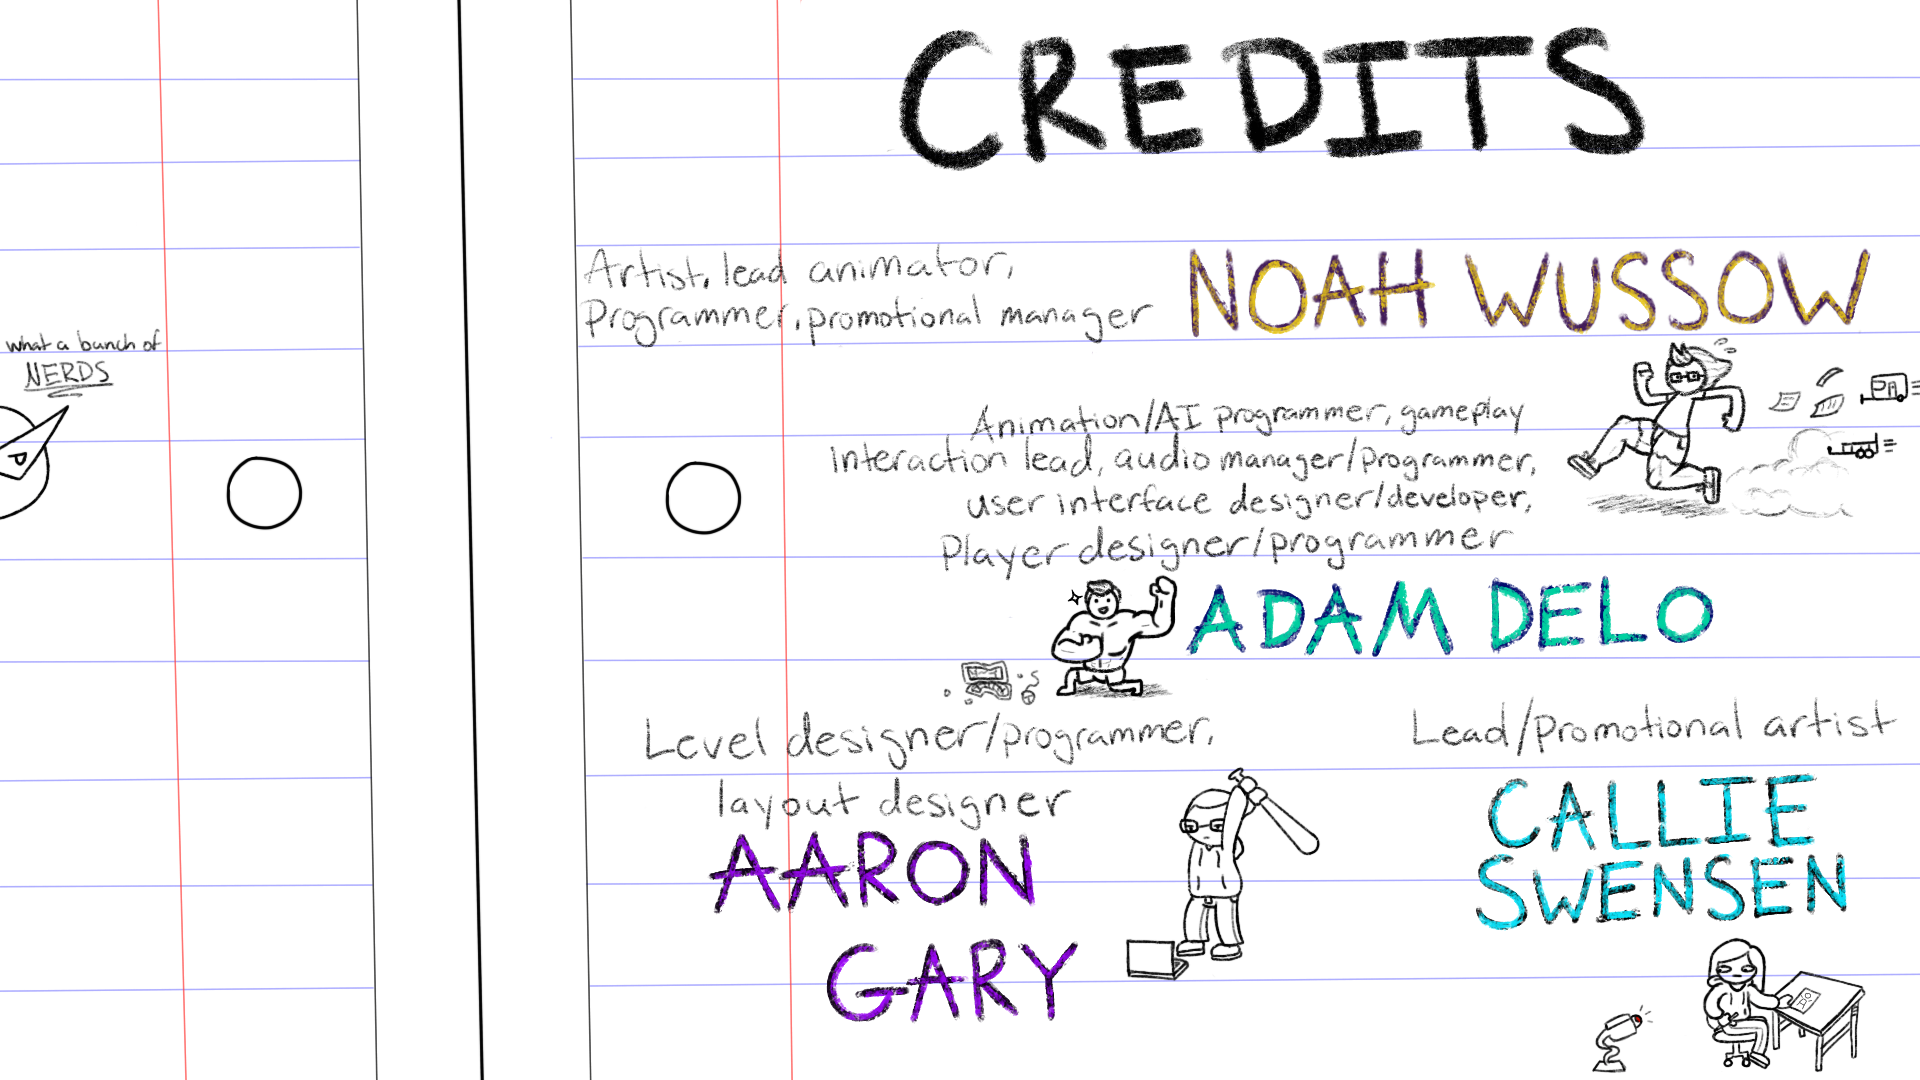 what a bunch of
NERDS
CREDITS
Artist, lead animator,
Programmer, promotional manager
NOAH WUSSOW
Animation/AI programmer, gameplay
interaction lead, audio manager/programmer,
user interface designer/developer,
Player designer/programmer
ADAM DELO
Level designer/programmer,
layout designer
AARON
GARY
Lead/promotional artist
CALLIE
SWENSEN